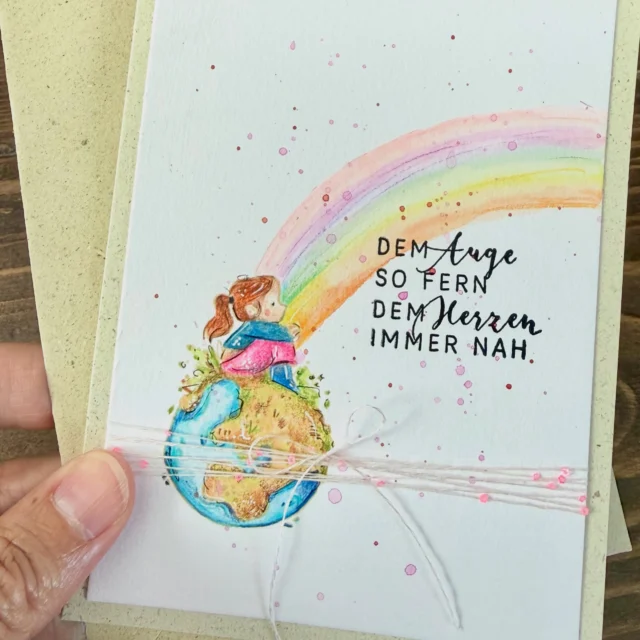 DEM Auge
SO FERN
DEM Herzen
IMMER NAH